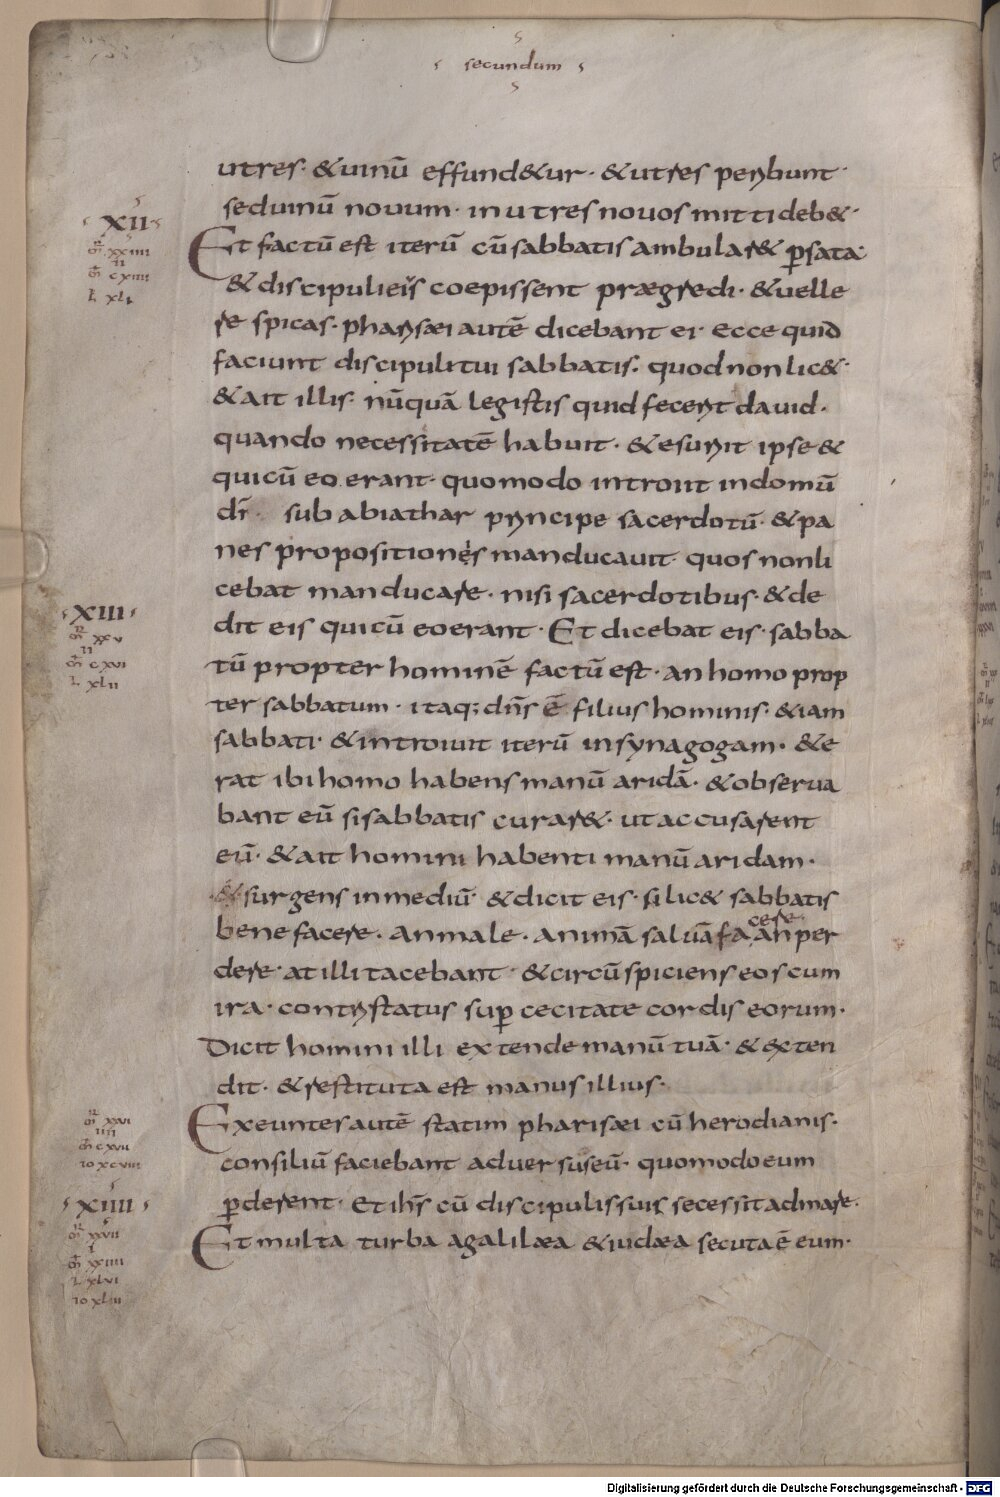 secundum
utres · & uinū effund&ur · & utres peribunt ·
sed uinū nouum · in utres nouos mitti deb& ·
Et factū est iterū cū sabbatis ambular& p sata ·
& discipuli eiꝰs coepissent prægredi · & uelle
re spicas · pharisæi autē dicebant ei · ecce quid
faciunt discipuli tui sabbatis · quod non lic& ·
& ait illis · nūquā legistis quid fecerit dauid ·
quando necessitatē habuit · & esuriit ipse &
qui cū eo erant · quomodo introiit in domū
dī · sub abiathar principe sacerdotū · & pa
nes propositiones manducauit · quos non li
cebat manducare · nisi sacerdotibus · & de
dit eis qui cū eo erant · Et dicebat eis · sabba
tū propter hominē factū est · an homo prop
ter sabbatum · itaq; dn̄s ē filius hominis · & iam
sabbati · & introiuit iterū in synagogam · & e
rat ibi homo habens manū aridā · & obserua
bant eū si sabbatis curar& · ut accusarent
eū · & ait homini habenti manū aridam ·
& surgens in mediū · & dicit eis · si lic& sabbatis
bene facere · an male · animā saluā facere · an per
dere · at illi tacebant · & circūspiciens eos cum
ira · contristatus sup cecitate cordis eorum ·
Dicit homini illi extende manū tuā · & exten
dit · & restituta est manus illius ·
Exeuntes autē statim pharisæi cū herodianis ·
consiliū faciebant aduersus eū · quomodo eum
pderent · Et ihs̄ cū discipulis suis secessit ad mare ·
Et multa turba a galilæa & iudæa secuta ē eum ·
XII
m̄r xxiiii
II
m̄ cxiiii
L xli
XIII
m̄r xxv
II
m̄ cxvi
L xlii
m̄r xxvi
IIII
m̄ cxvii
io xcviii
XIIII
m̄r xxvii
I
m̄ xxiiii
L xlvi
io xliii
Digitalisierung gefördert durch die Deutsche Forschungsgemeinschaft - DFG